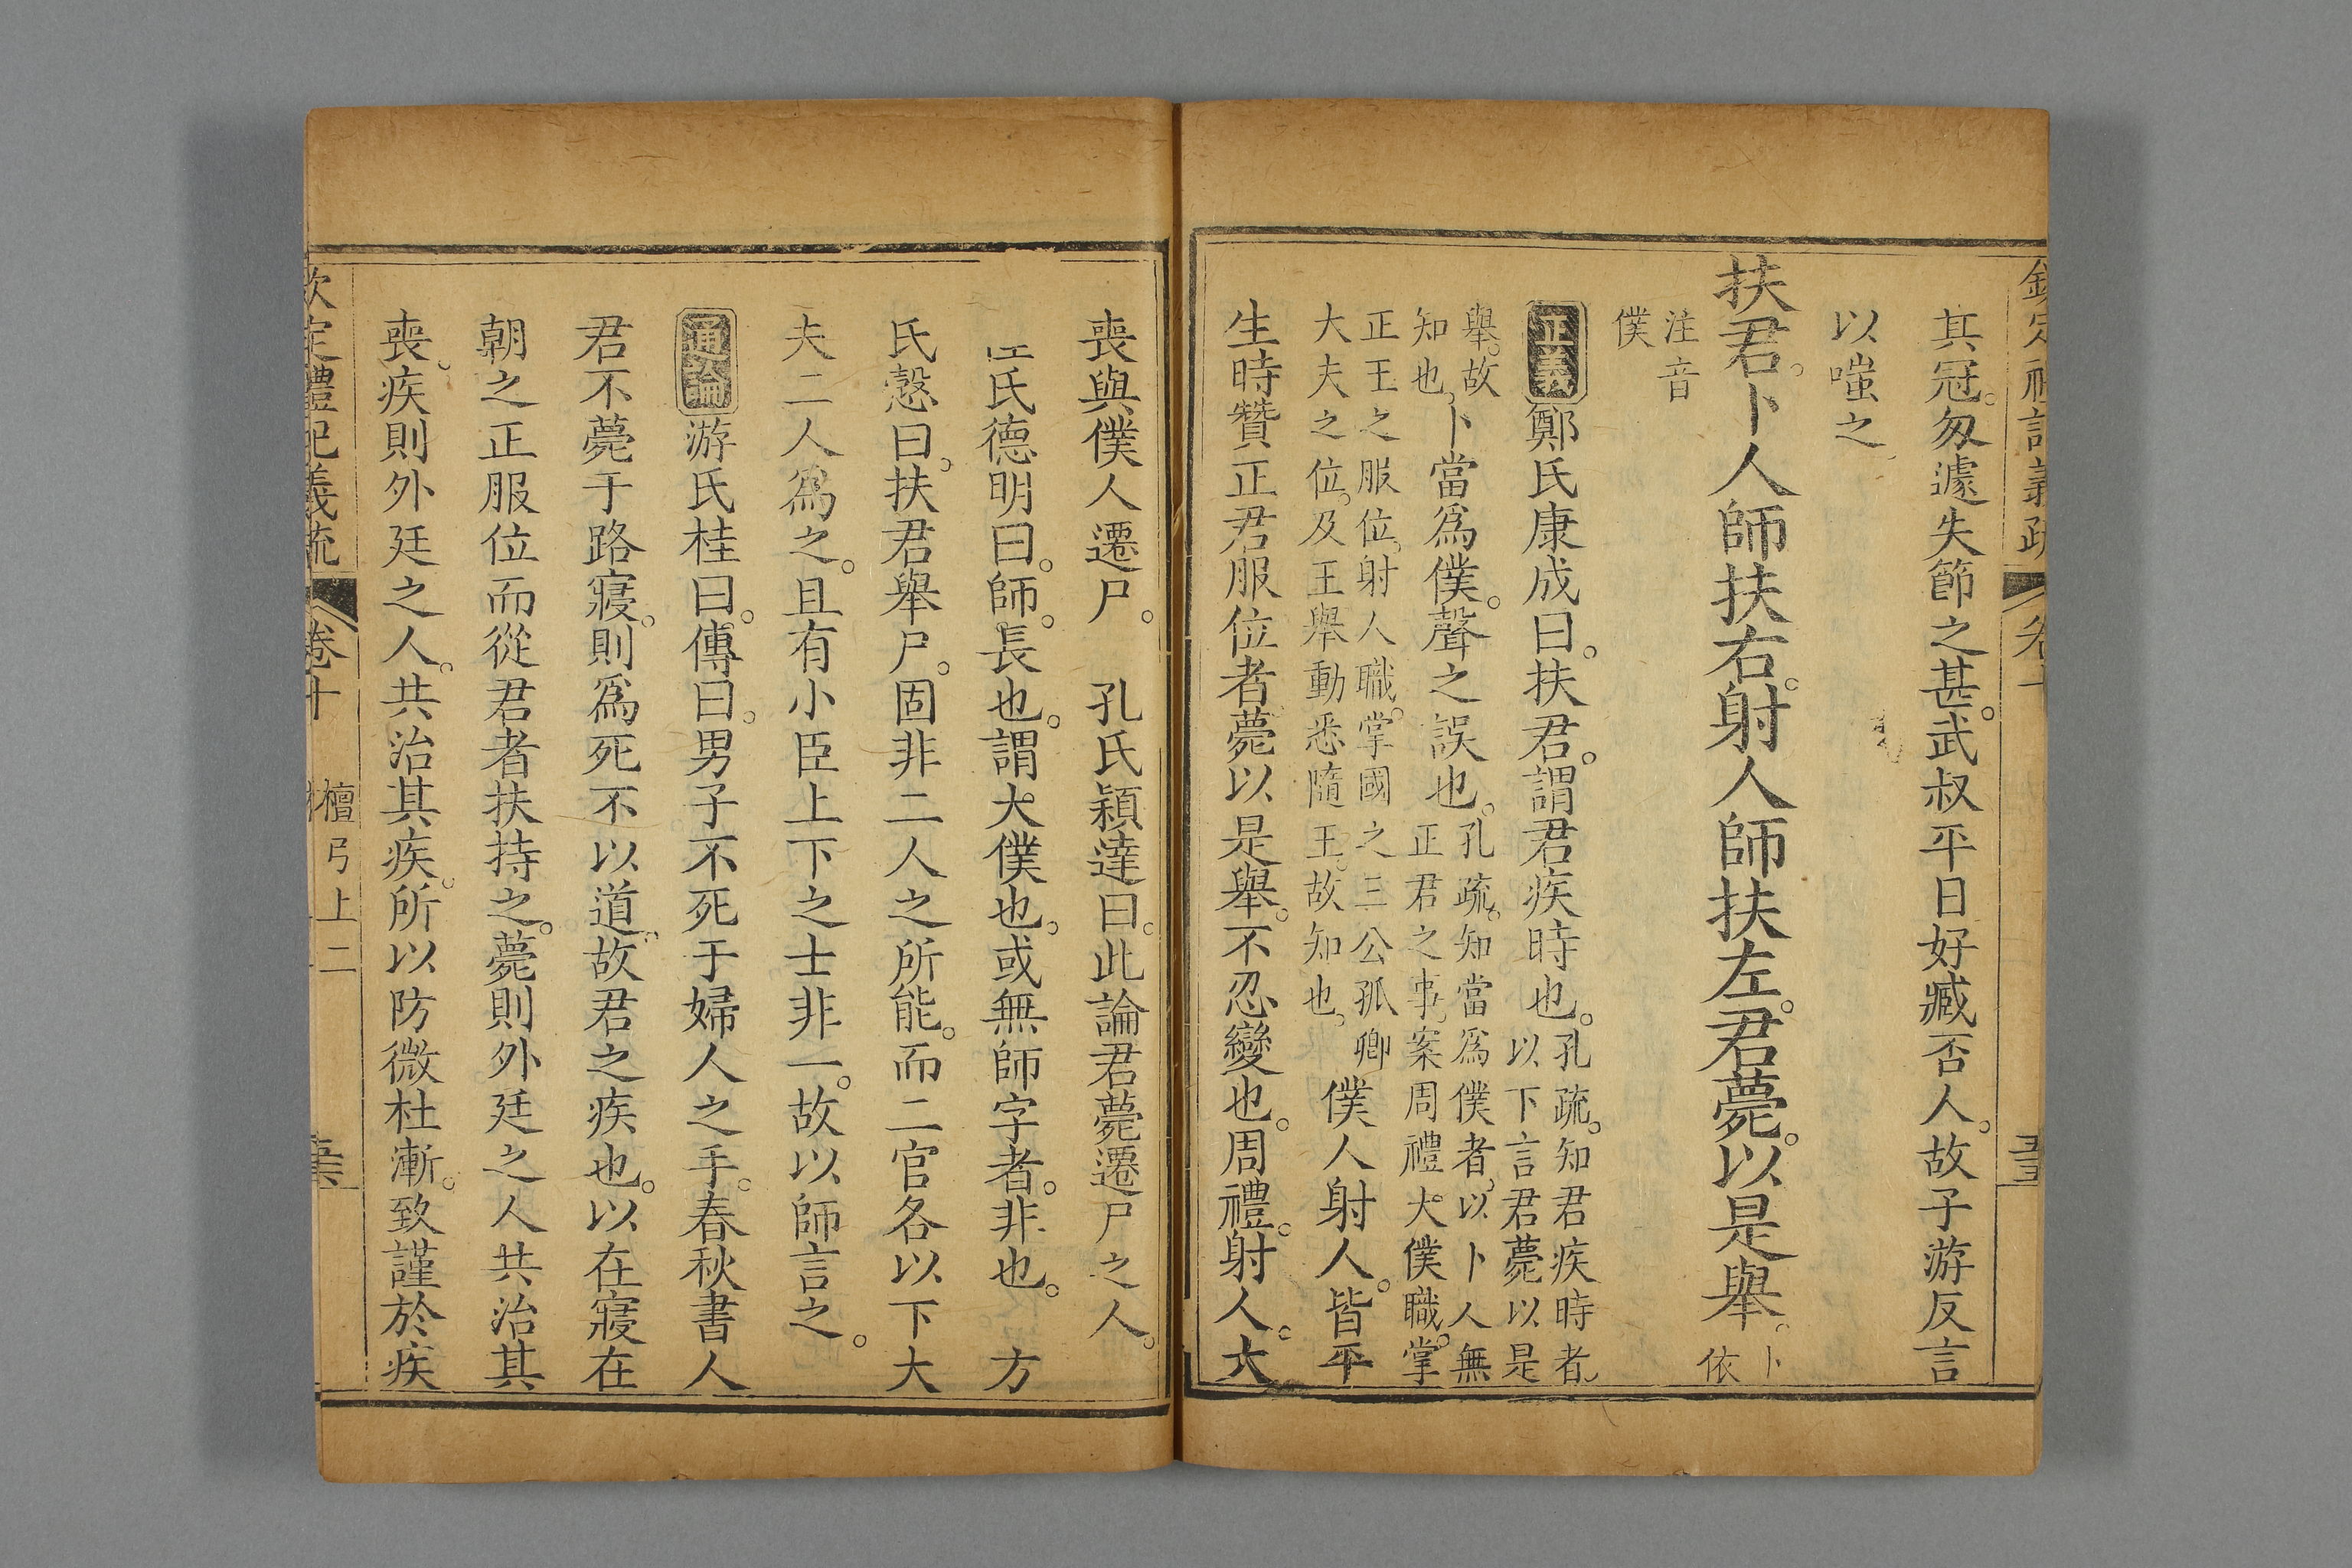 其冠。匆遽失節之甚。武叔平日好臧否人。故子游反言
以嗤之
扶君。卜人師扶右。射人師扶左。君薨。以是舉。卜依
注音僕
正義 鄭氏康成曰。扶君。謂君疾時也。孔疏。知君疾時者。以下言君薨以是
舉。故知也。卜當爲僕。聲之誤也。孔疏。知當爲僕者。以卜人無正君之事。案周禮大僕職。掌
正王之服位。射人職。掌國之三公孤卿大夫之位。及王舉動悉隨王。故知也。僕人射人。皆平
生時贊正君服位者。薨以是舉。不忍變也。周禮。射人。大
喪與僕人遷尸。 孔氏穎達曰。此論君薨遷尸之人。
汪氏德明曰。師。長也。謂大僕也。或無師字者。非也。 方
氏慤曰。扶君舉尸。固非二人之所能。而二官各以下大
夫二人爲之。且有小臣上下之士非一。故以師言之。
通論 游氏桂曰。傳曰。男子不死于婦人之手。春秋書人
君不薨于路寢。則爲死不以道。故君之疾也。以在寢在
朝之正服位而從君者扶持之。薨則外廷之人共治其
喪。疾則外廷之人。共治其疾。所以防微杜漸。致謹於疾
欽定禮記義疏 卷十 檀弓上二